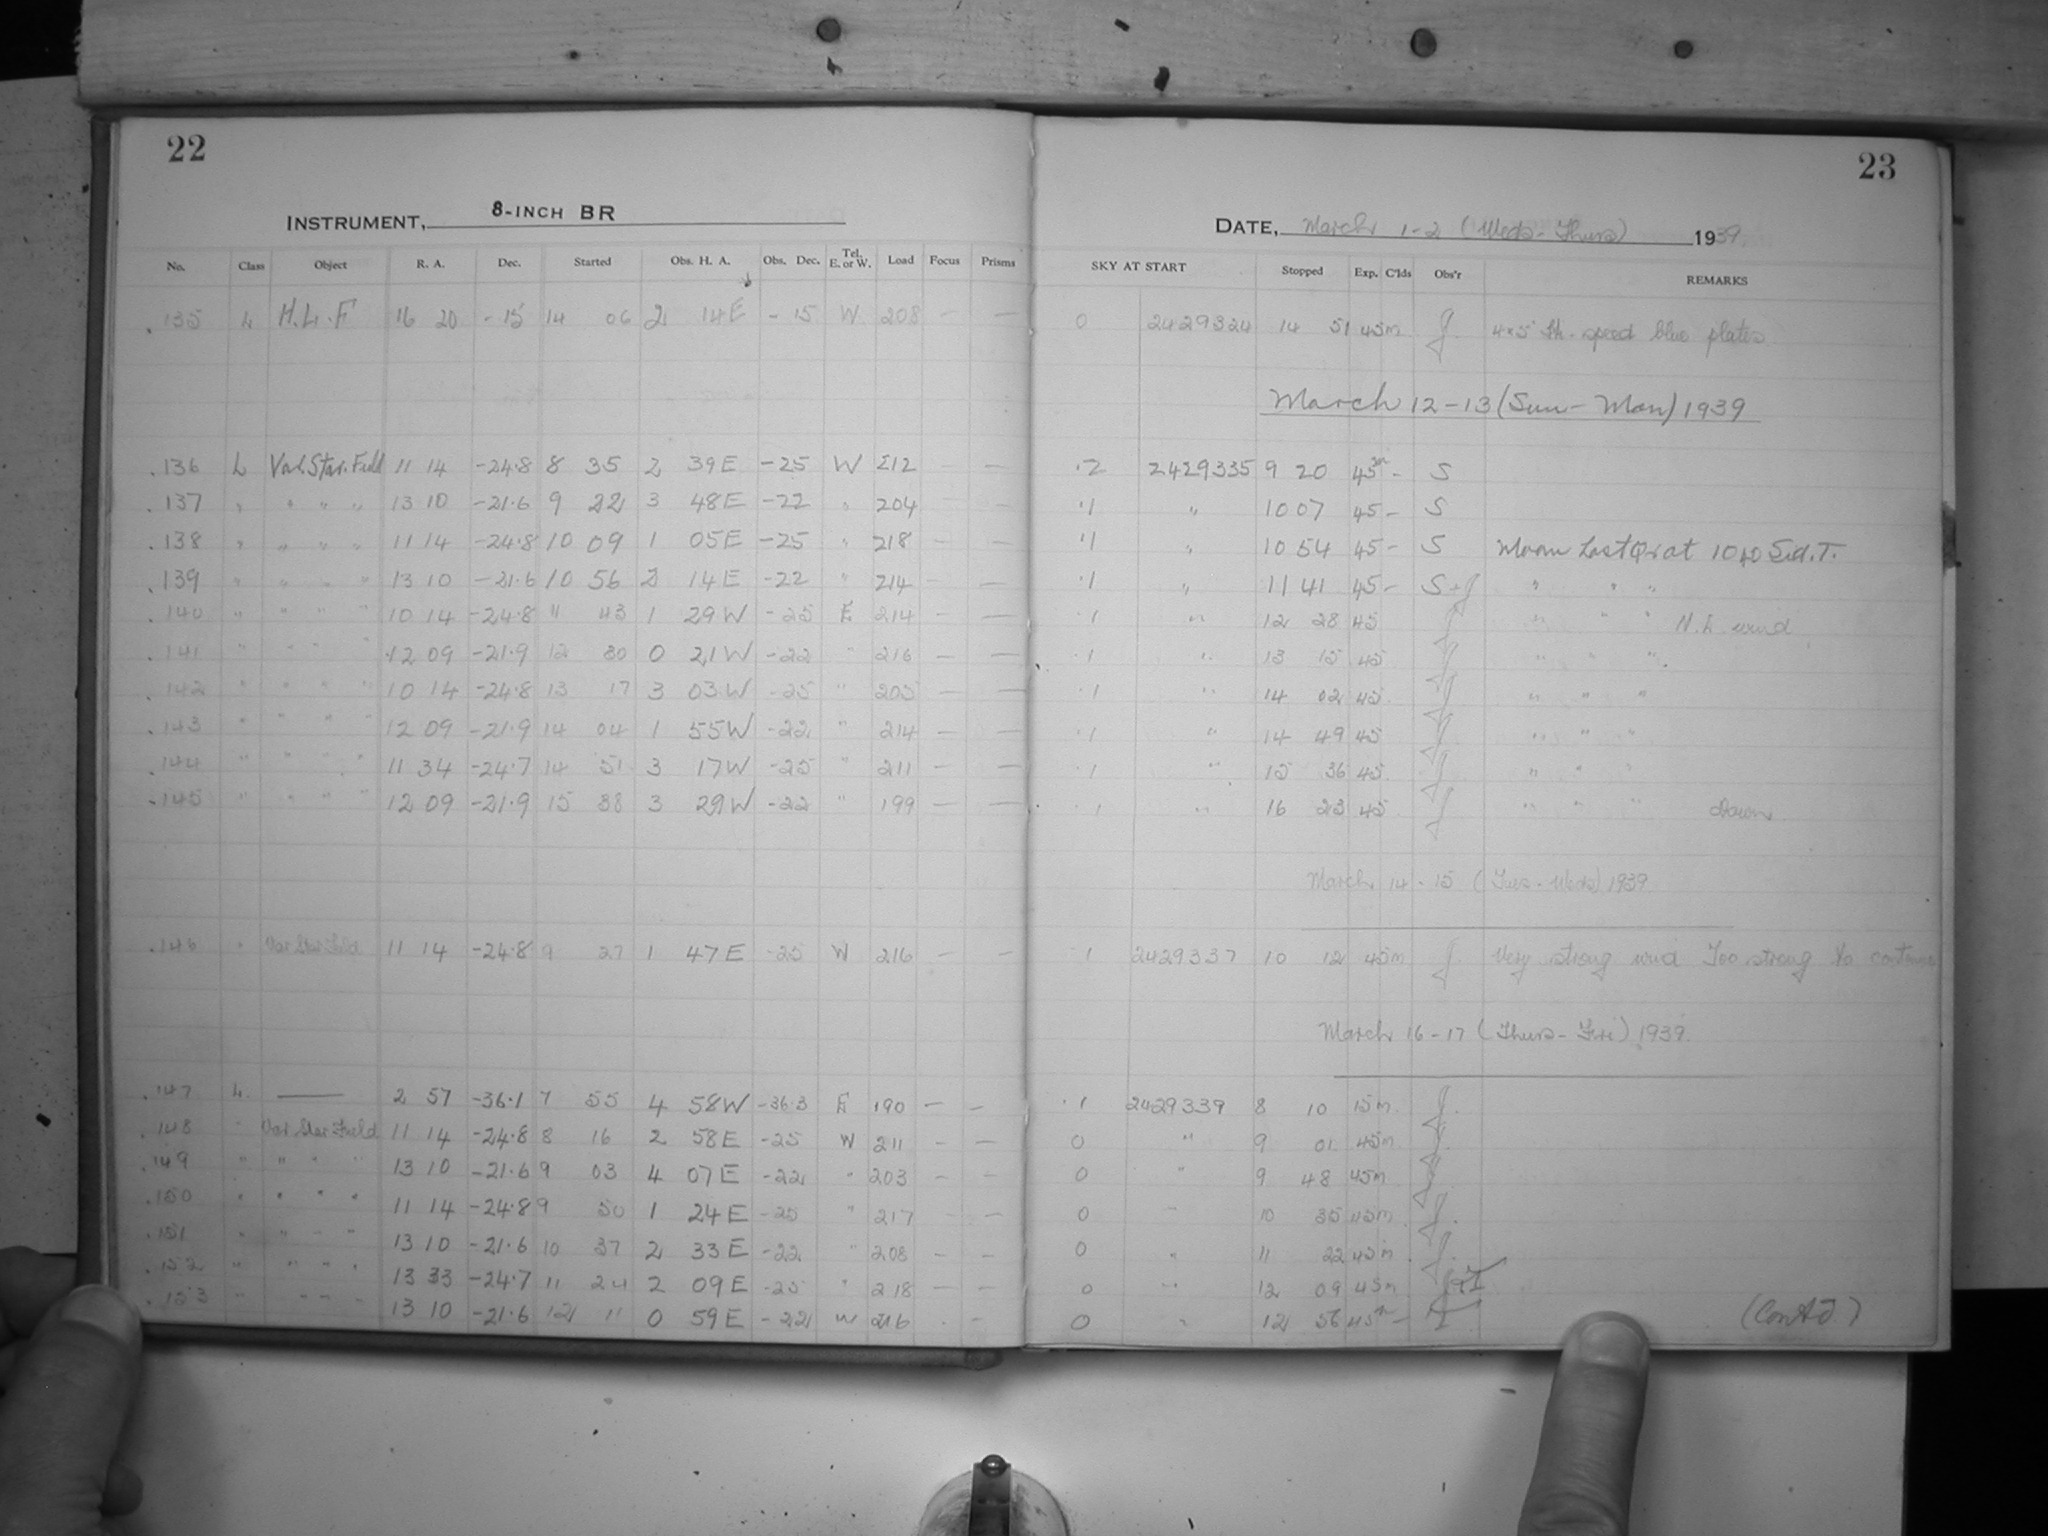 22
INSTRUMENT, 8-INCH BR
No. Class Object R. A. Dec. Started Obs. H. A. Obs. Dec. Tel. E. or W. Load Focus Prisms
.135 L H.L.F 16 20 -15 14 06 2 14E -15 W 208 — —
.136 L Var. Star. Field 11 14 -24.8 8 35 2 39E -25 W 212 — —
.137 " " " " 13 10 -21.6 9 22 3 48E -22 " 204 — —
.138 " " " " 11 14 -24.8 10 09 1 05E -25 " 218 — —
.139 " " " " 13 10 -21.6 10 56 2 14E -22 " 214 — —
.140 " " " " 10 14 -24.8 11 43 1 29W -25 E 214 — —
.141 " " " " 12 09 -21.9 12 30 0 21W -22 " 216 — —
.142 " " " " 10 14 -24.8 13 17 3 03W -25 " 205 — —
.143 " " " " 12 09 -21.9 14 04 1 55W -22 " 214 — —
.144 " " " " 11 34 -24.7 14 51 3 17W -25 " 211 — —
.145 " " " " 12 09 -21.9 15 38 3 29W -22 " 199 — —
.146 " Var Star Field 11 14 -24.8 9 27 1 47E -25 W 216 — —
.147 L — 2 57 -36.1 7 55 4 58W -36.3 E 190 — —
.148 " Var Star Field 11 14 -24.8 8 16 2 58E -25 W 211 — —
.149 " " " " 13 10 -21.6 9 03 4 07E -22 " 203 — —
.150 " " " " 11 14 -24.8 9 50 1 24E -25 " 217 — —
.151 " " " " 13 10 -21.6 10 37 2 33E -22 " 208 — —
.152 " " " " 13 33 -24.7 11 24 2 09E -25 " 218 — —
.153 " " " " 13 10 -21.6 12 11 0 59E -22 W 216 - —
23
DATE, March 1-2 (Weds-Thurs) 1939.
SKY AT START Stopped Exp. C'lds Obs'r REMARKS
0 2429324 14 51 45m J. 4x5 speed blue plates
March 12-13 (Sun-Mon) 1939
.2 2429335 9 20 45m - S
.1 " 10 07 45 - S
.1 " 10 54 45 - S Moon Last Qr at 1040 Sid.T.
.1 " 11 41 45 - S+J " " "
.1 " 12 28 45 J " " " N.E wind
.1 " 13 15 45 J " " "
.1 " 14 02 45 J " " "
.1 " 14 49 45 J " " "
.1 " 15 36 45 J " " "
.1 " 16 23 45 J " " " Dawn
March 14-15 (Tues-Weds) 1939
.1 2429337 10 12 45m J. Very strong wind Too strong to continue
March 16-17 (Thurs-Fri) 1939.
.1 2429339 8 10 15m J.
0 " 9 01 45m J.
0 " 9 48 45m J.
0 " 10 35 45m J.
0 " 11 22 45m J.
0 " 12 09 45m
0 " 12 56 45m -
(Contd.)